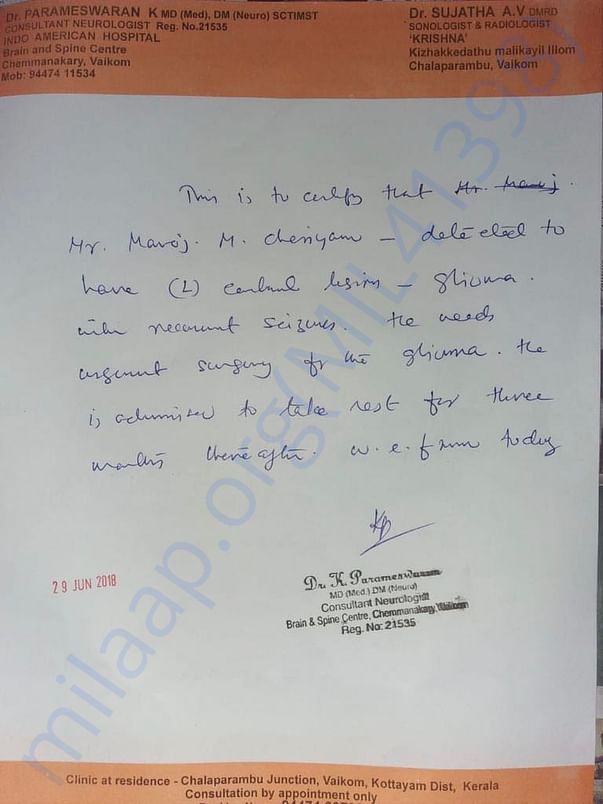 Dr. PARAMESWARAN K MD (Med), DM (Neuro) SCTIMST
CONSULTANT NEUROLOGIST Reg. No.21535
INDO AMERICAN HOSPITAL
Brain and Spine Centre
Chemmanakary, Vaikom
Mob: 94474 11534
Dr. SUJATHA A.V DMRD
SONOLOGIST & RADIOLOGIST
'KRISHNA'
Kizhakkedathu malikayil Illom
Chalaparambu, Vaikom
This is to certify that Mr. Manoj.
Mr. Manoj. M. Cheriyan – detected to
have (L) lesion – glioma.
with recurrent seizures. He needs
urgent surgery for the glioma. He
is advised to take rest for three
months thereafter. w.e. from today
29 JUN 2018
Dr. K. Parameswaran
MD (Med.) DM (Neuro)
Consultant Neurologist
Brain & Spine Centre, Chemmanakary, Vaikom
Reg. No: 21535
milaap.org(MIL41398)
Clinic at residence - Chalaparambu Junction, Vaikom, Kottayam Dist, Kerala
Consultation by appointment only